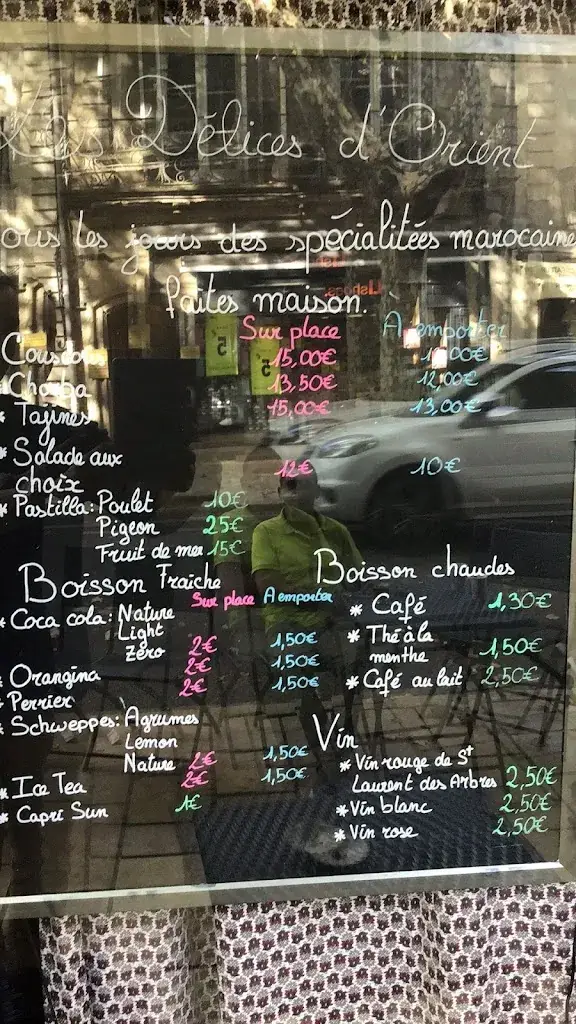 Les Délices d'Orient
ous les jours des spécialitées marocaine
faites maison.
Sur place A emporter
Couscous 15,00€
Chorba 13,50€ 12,00€
* Tajines 15,00€ 13,00€
* Salade aux
choix 12€ 10€
* Pastilla: Poulet 10€
Pigeon 25€
Fruit de mer 15€
Boisson Fraiche
Sur place A emporter
* Coca cola: Nature
Light
Zéro 2€ 1,50€
* Orangina 2€ 1,50€
* Perrier 2€ 1,50€
* Schweppes: Agrumes
Lemon
Nature 2€ 1,50€
* Ice Tea 2€ 1,50€
* Capri Sun 1€
Boisson chaudes
* Café 1,30€
* Thé à la
menthe 1,50€
* Café au lait 2,50€
Vin
* Vin rouge de St
Laurent des Arbres 2,50€
* Vin blanc 2,50€
* Vin rose 2,50€